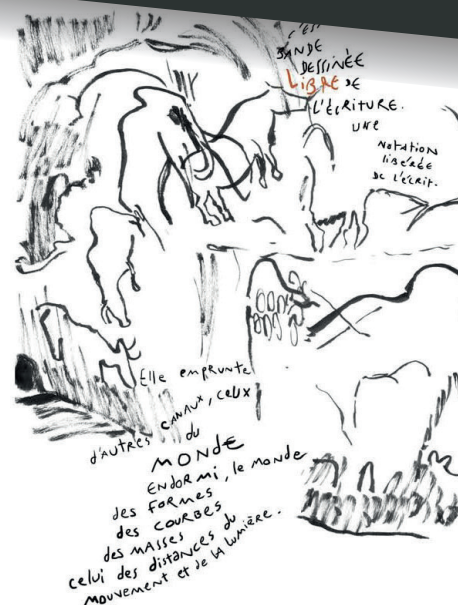 C'EST
BANDE
DESSINÉE
LIBRE DE
L'ÉCRITURE.
UNE
NOTATION
libéRÉE
DE L'ÉCRIT.
Elle EMPRUNTE
d'AUTRES CANAUX, CEUX
du
MONDE
ENDORMI, le MONDE
des FORMES
des COURBES
des MASSES
celui des distances du
MOUVEMENT et de la lumière.